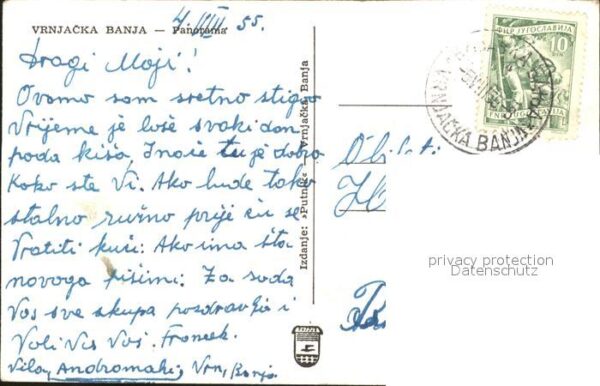 VRNJAČKA BANJA — Panorama
4. VIII 55.
Dragi Moji!
Ovamo sam sretno stigao
Vrijeme je loše svaki dan
pada kiša, Inače tu je dobro
Kako ste Vi. Ako bude tako
stalno ružno prije ću se
Vratiti kući. Ako ima šta
novoga pišimi. Za sada
Vas sve skupa pozdravlja i
Voli Vas Vaš. Francek.
Vila, Andromahi, Vrn, Banja
Izdanje: »Putnik« Vrnjačka Banja
Obitelj
ФНР ЈУГОСЛАВИЈА
10
DIN
FNR JUGOSLAVIJA
VRNJAČKA BANJA
privacy protection
Datenschutz